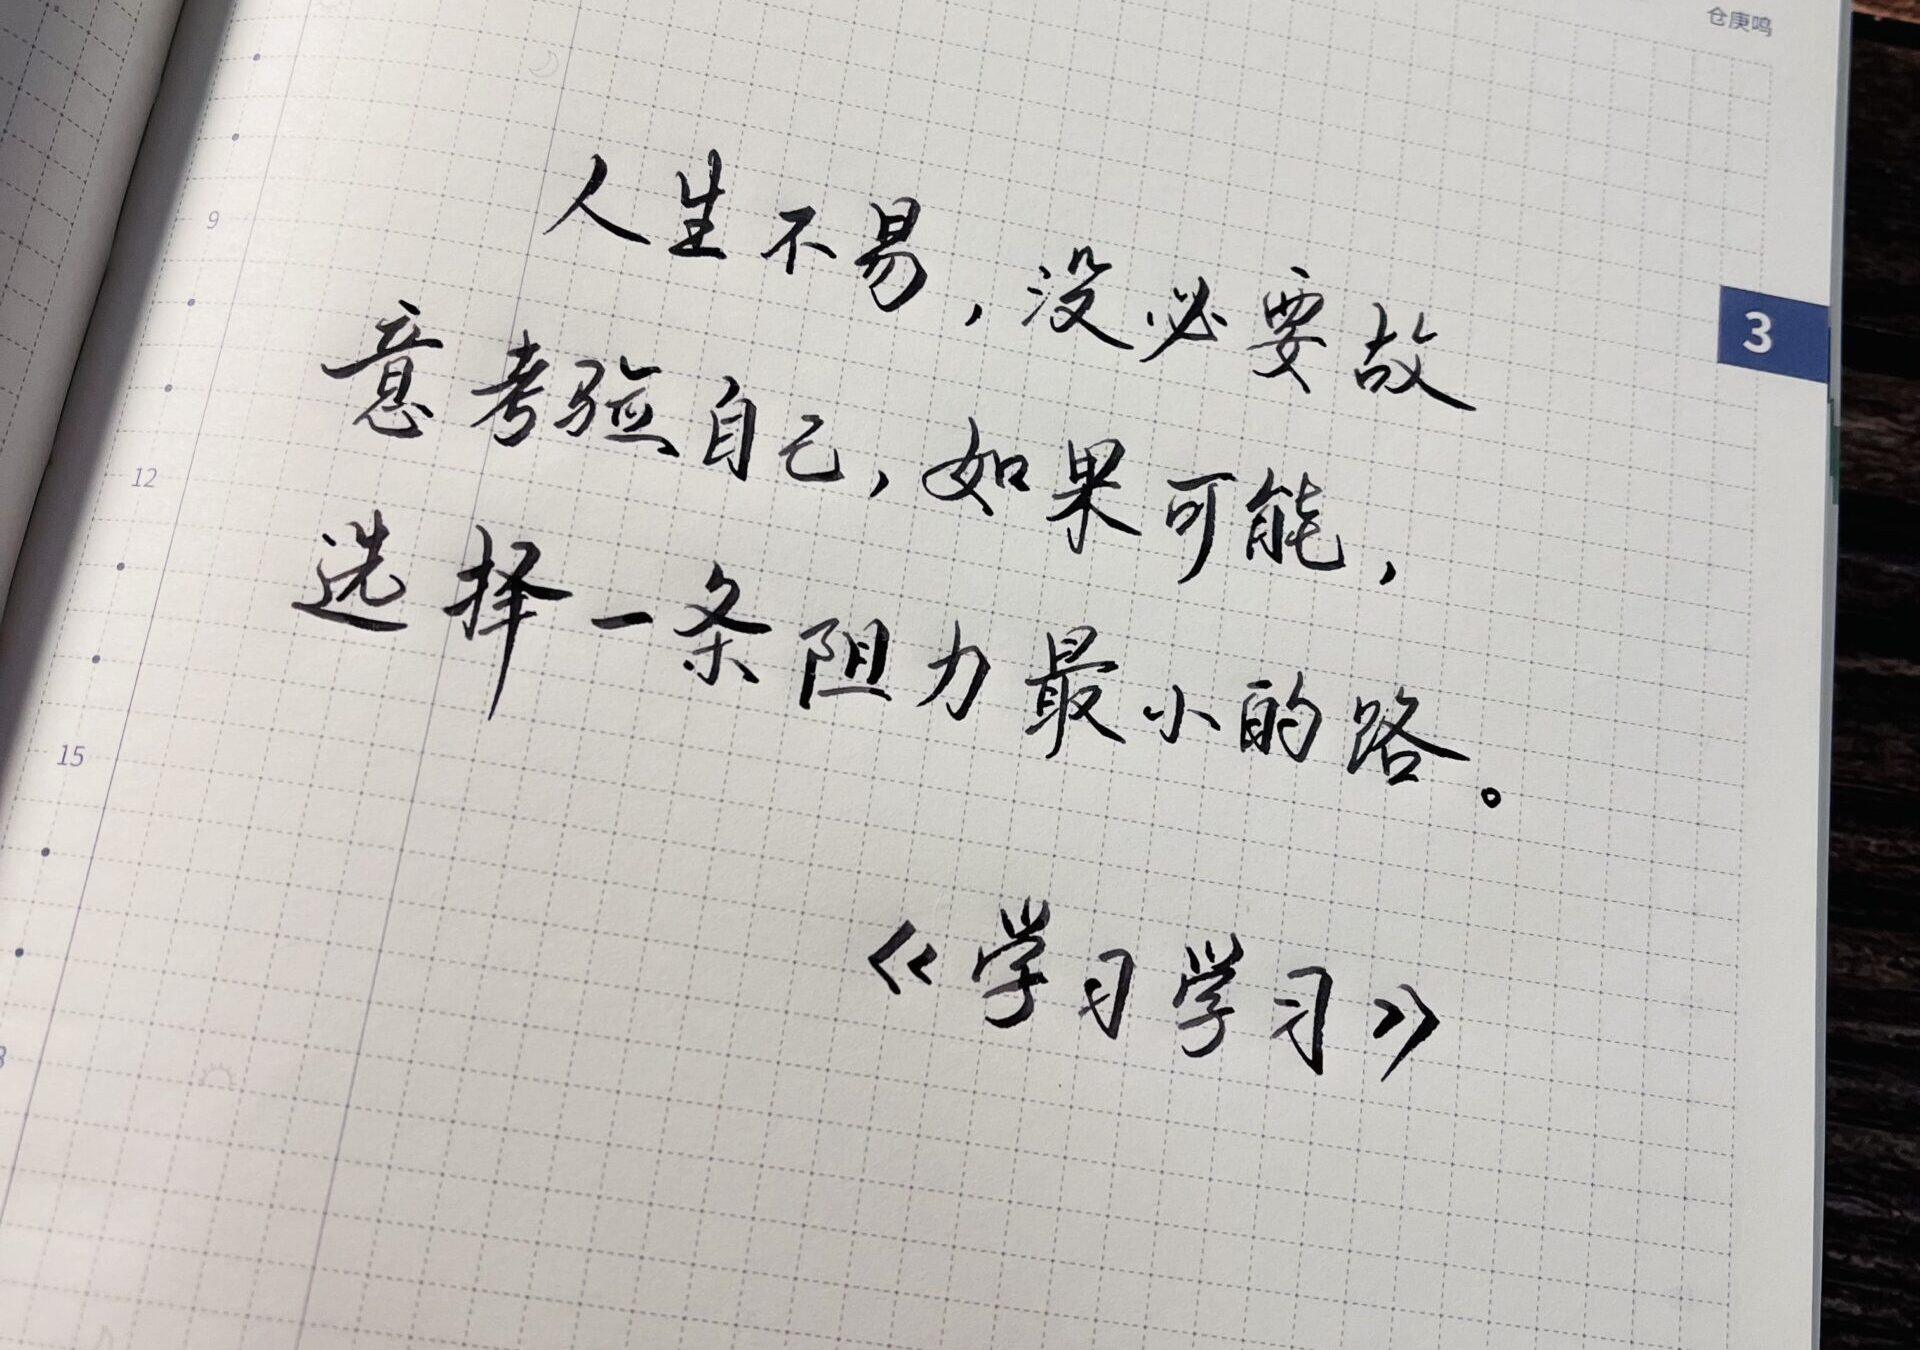 仓庚鸣
人生不易，没必要故
意考验自己，如果可能，
选择一条阻力最小的路。
《学习学习》
3
9
12
15